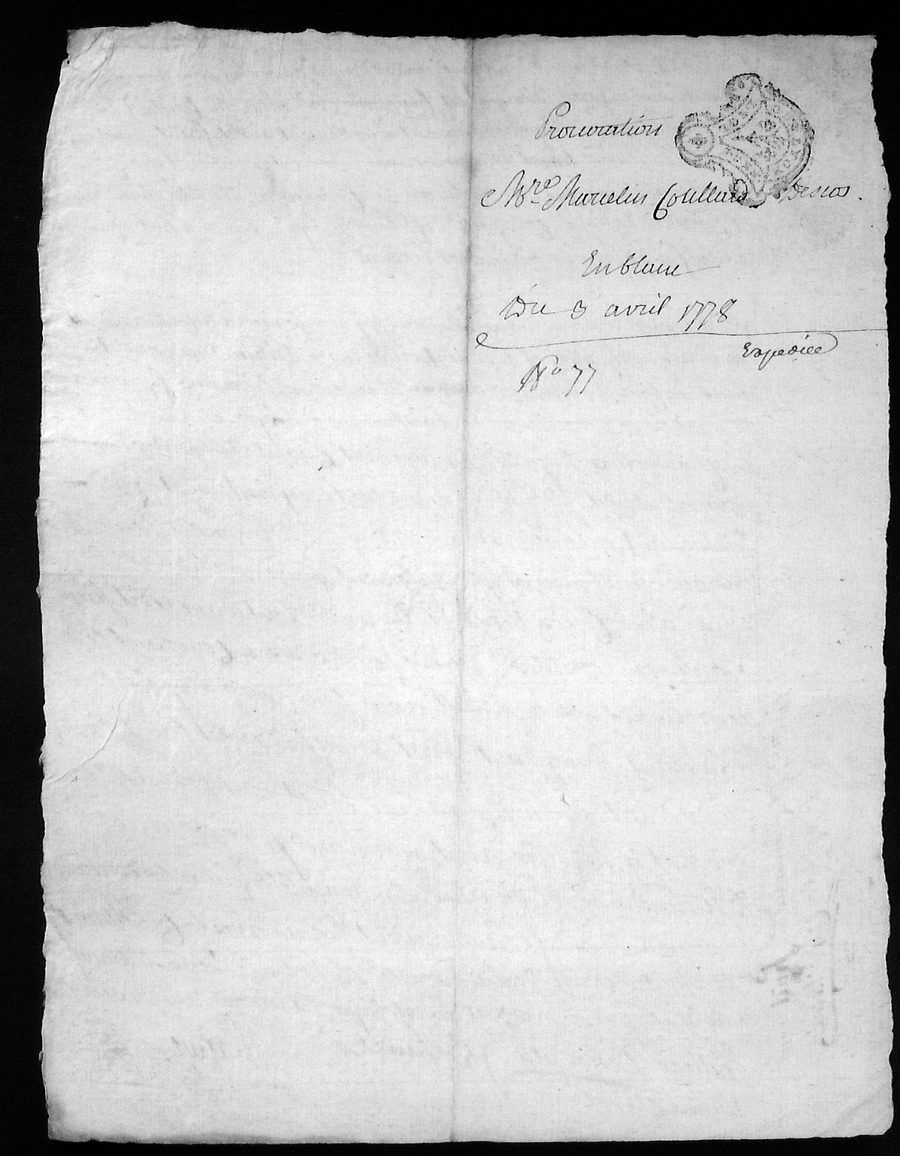 Procuration
Mre. Marcelin Coullard Descos.
En blanc
Du 3 avril 1778
Expediée
No 77